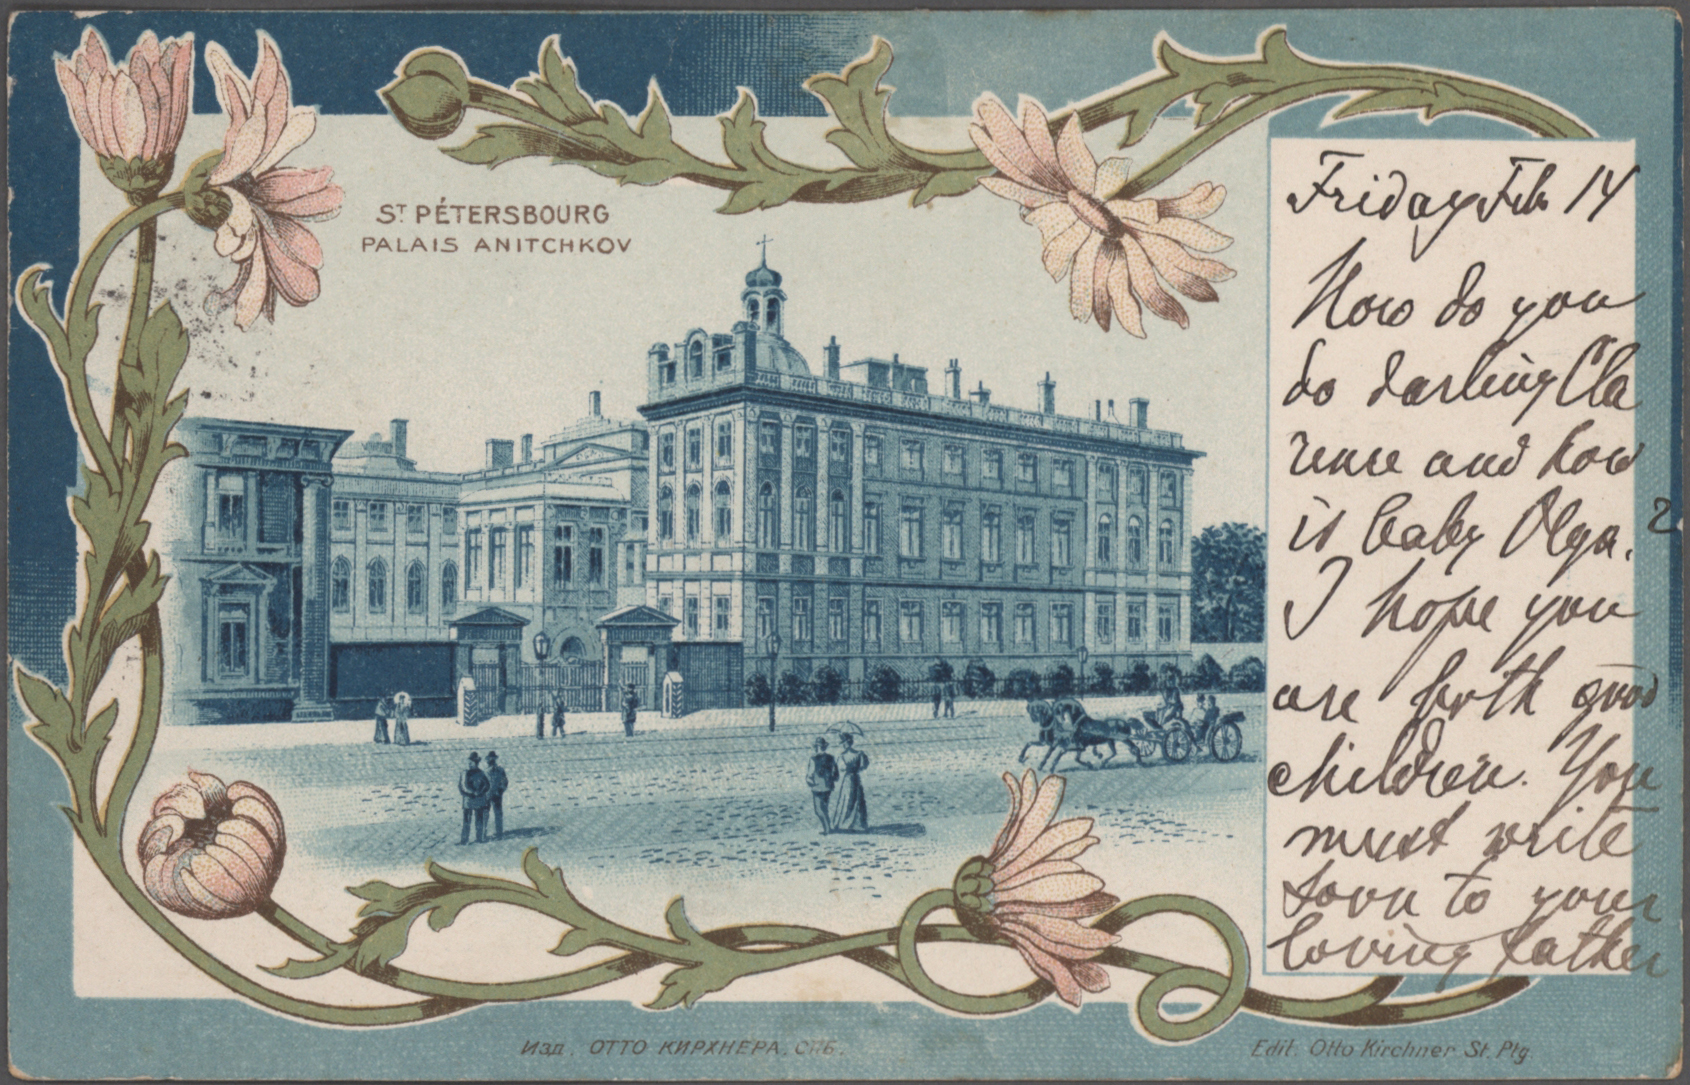 ST PÉTERSBOURG
PALAIS ANITCHKOV
Friday Feb 14
How do you
do darling Cla
rence and how
is baby Olga.
2
I hope you
are both good
children. You
must write
soon to your
loving father
Изд. ОТТО КИРХНЕРА. СПБ.
Edit. Otto Kirchner St. Ptg.